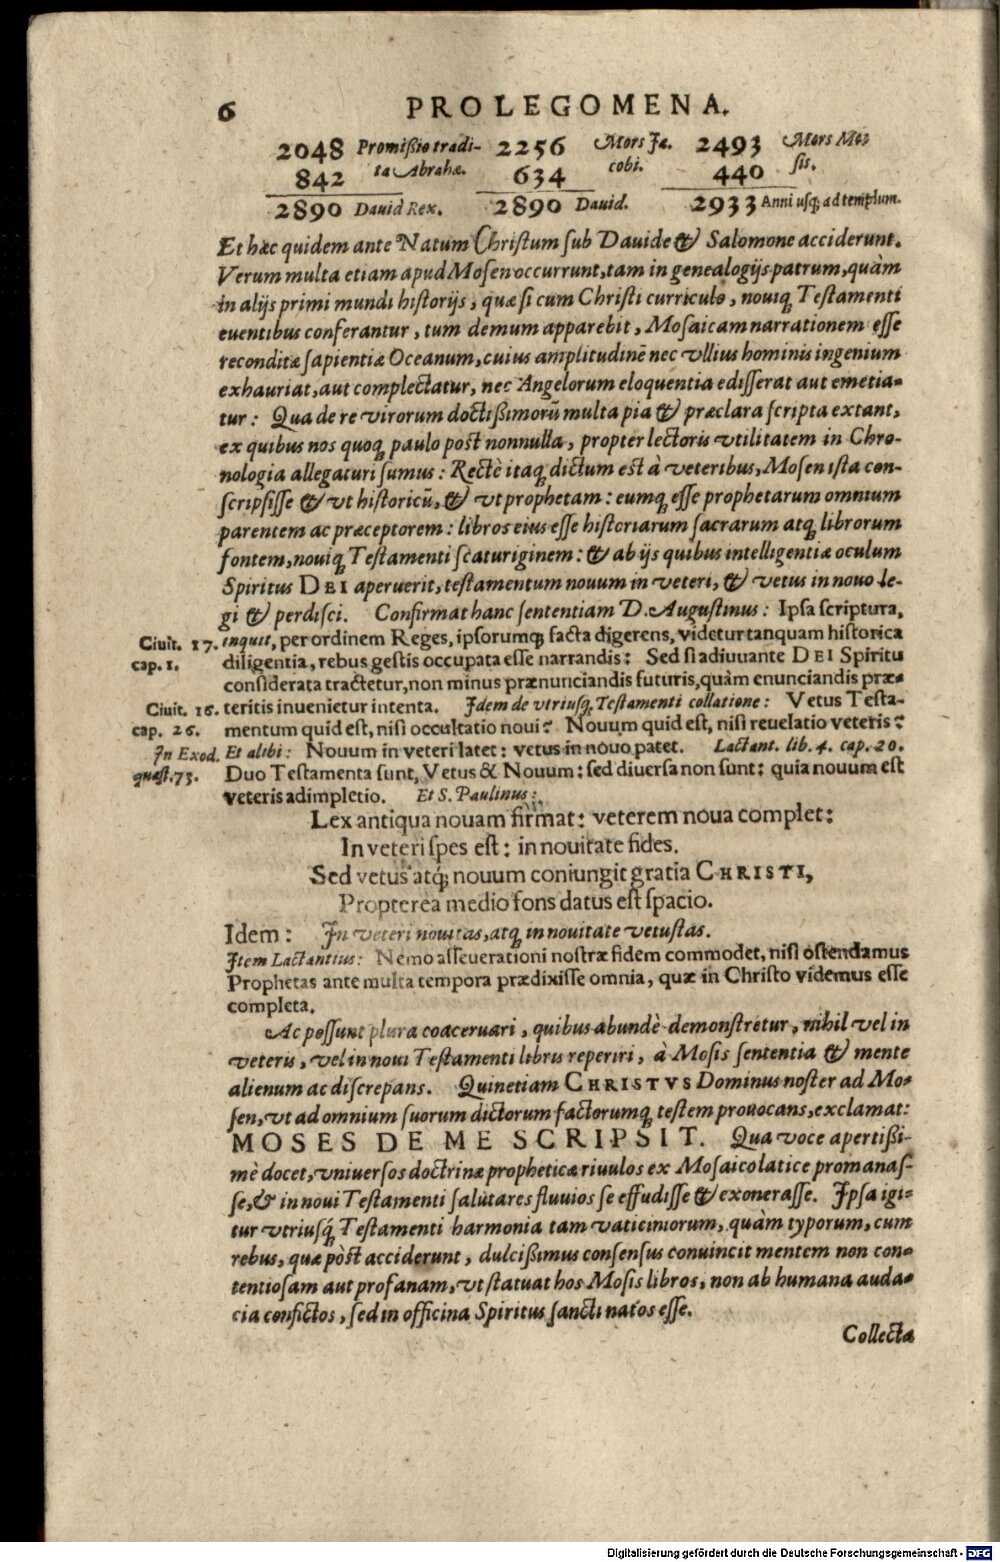 6 PROLEGOMENA.
2048 Promißio tradi- 2256 Mors Ja. 2493 Mors Mo-
842 ta Abrahæ. 634 cobi. 440 sis.
2890 David Rex. 2890 Dauid. 2933 Anni usq; ad templum.
Et hæc quidem ante Natum Christum sub Dauide & Salomone acciderunt.
Verum multa etiam apud Mosen occurrunt, tam in genealogijs patrum, quàm
in alijs primi mundi historijs, quæ si cum Christi curriculo, nouiq; Testamenti
euentibus conferantur, tum demum apparebit, Mosaicam narrationem esse
reconditæ sapientiæ Oceanum, cuius amplitudinē nec vllius hominis ingenium
exhauriat, aut complectatur, nec Angelorum eloquentia edisserat aut emetia-
tur: Qua de re virorum doctißimorū multa pia & præclara scripta extant,
ex quibus nos quoq; paulo post nonnulla, propter lectoris vtilitatem in Chro-
nologia allegaturi sumus: Rectè itaq; dictum est à veteribus, Mosen ista con-
scripsisse & vt historicū, & vt prophetam: eumq; esse prophetarum omnium
parentem ac præceptorem: libros eius esse historiarum sacrarum atq; librorum
fontem, nouiq; Testamenti scaturiginem: & ab ijs quibus intelligentiæ oculum
Spiritus DEI aperuerit, testamentum nouum in veteri, & vetus in nouo le-
gi & perdisci. Confirmat hanc sententiam D. Augustinus: Ipsa scriptura,
Ciuit. 17. inquit, per ordinem Reges, ipsorumq; facta digerens, videtur tanquam historica
cap. 1. diligentia, rebus gestis occupata esse narrandis: Sed si adiuuante DEI Spiritu
considerata tractetur, non minus prænunciandis futuris, quàm enunciandis præ-
Ciuit. 16. teritis inuenietur intenta. Idem de vtriusq; Testamenti collatione: Vetus Testa-
cap. 26. mentum quid est, nisi occultatio noui? Nouum quid est, nisi reuelatio veteris?
In Exod. Et alibi: Nouum in veteri latet: vetus in nouo patet. Lactant. lib. 4. cap. 20.
quæst. 73. Duo Testamenta sunt, Vetus & Nouum: sed diuersa non sunt: quia nouum est
veteris adimpletio. Et S. Paulinus:
Lex antiqua nouam firmat: veterem noua complet:
In veteri spes est: in nouitate fides.
Sed vetus atq; nouum coniungit gratia CHRISTI,
Propterea medio fons datus est spacio.
Idem: In veteri nouitas, atq; in nouitate vetustas.
Item Lactantius: Nemo asseuerationi nostræ fidem commodet, nisi ostendamus
Prophetas ante multa tempora prædixisse omnia, quæ in Christo videmus esse
completa.
Ac possunt plura coaceruari, quibus abundè demonstretur, nihil vel in
veteris, vel in noui Testamenti libris reperiri, à Mosis sententia & mente
alienum ac discrepans. Quinetiam CHRISTVS Dominus noster ad Mo-
sen, vt ad omnium suorum dictorum factorumq; testem prouocans, exclamat:
MOSES DE ME SCRIPSIT. Qua voce apertißi-
mè docet, vniuersos doctrinæ propheticæ riuulos ex Mosaico latice promanas-
se, & in noui Testamenti salutares fluuios se effudisse & exonerasse. Ipsa igi-
tur vtriusq́; Testamenti harmonia tam vaticiniorum, quàm typorum, cum
rebus, quæ pòst acciderunt, dulcißimus consensus conuincit mentem non con-
tentiosam aut profanam, vt statuat hos Mosis libros, non ab humana auda-
cia confictos, sed in officina Spiritus sancti natos esse.
Collecta
Digitalisierung gefördert durch die Deutsche Forschungsgemeinschaft - DFG